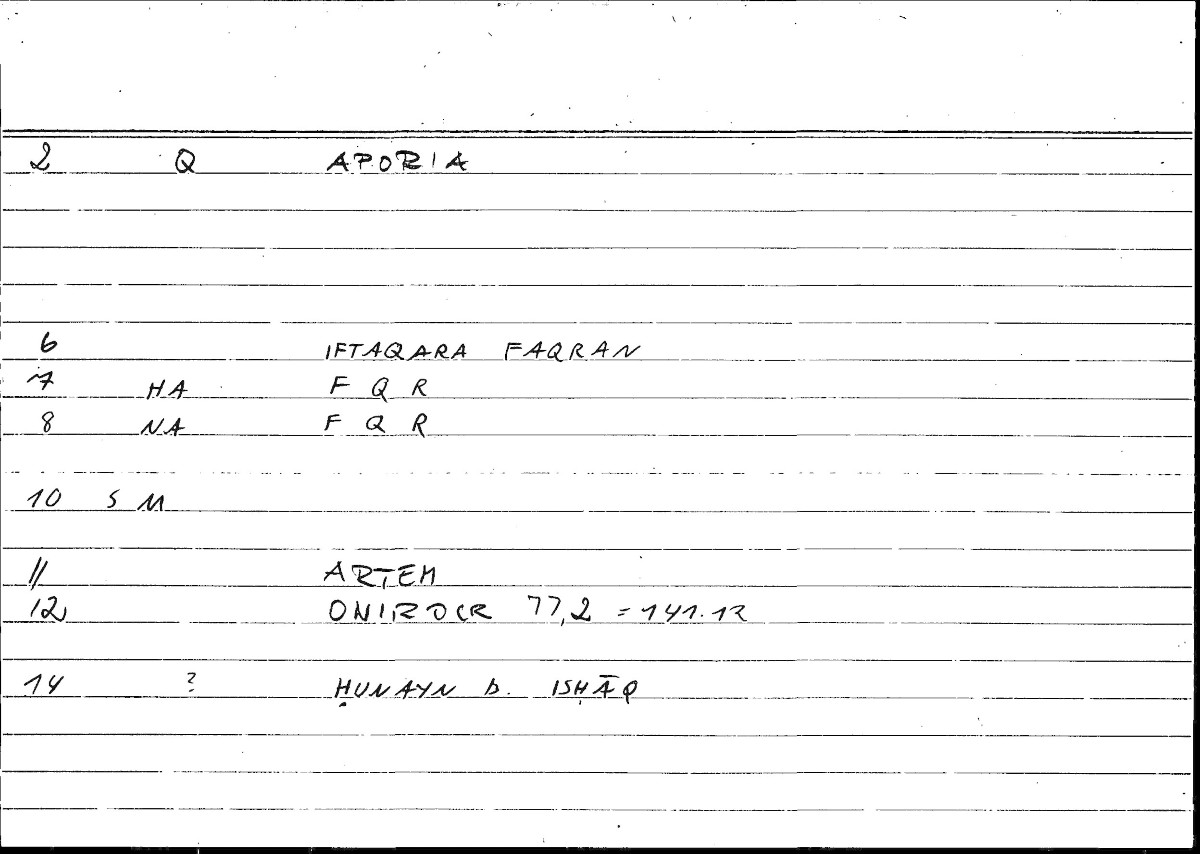 2 Q APORIA
6 IFTAQARA FAQRAN
7 HA F Q R
8 NA F Q R
10 S M
11 ARTEM
12 ONIROCR 77,2 = 141.12
14 ? ḤUNAYN b. ISḤĀQ